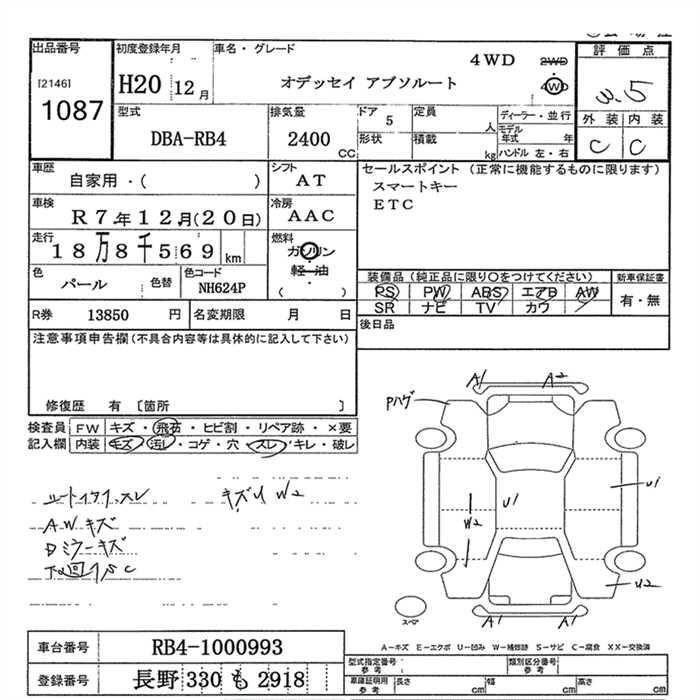 出品番号
[2146]
1087
初度登録年月
H20 12月
車名・グレード
4WD 2WD
オデッセイ アブソルート 4WD
評価点
3.5
外装 内装
C C
型式
DBA-RB4
排気量
2400 CC
ドア 5
形状
定員 人
積載 kg
ディーラー・並行
モデル年式 年
ハンドル 左・右
車歴
自家用・( )
シフト
AT
セールスポイント(正常に機能するものに限ります)
スマートキー
ETC
車検
R7年12月(20日)
冷房
AAC
走行
18万8千569 km
燃料
ガソリン
軽油
・
( )
色
パール 色替
色コード
NH624P
装備品(純正品に限り○をつけてください)
PS PW ABS エアB AW
SR ナビ TV カワ
新車保証書
有・無
R券 13850 円
名変期限 月 日
後日品
注意事項申告欄(不具合内容等は具体的に記入して下さい)
修復歴 有 〔箇所 〕
検査員記入欄
FW キズ・飛石・ヒビ割・リペア跡・×要
内装 キズ・汚レ・コゲ・穴・スレ・キレ・破レ
シートイタミ、スレ キズU W2
AWキズ
Dミラーキズ
下回りSC
A1 A2
Pハゲ
U1
U1
W2
U2
A1 A1
スペア
A−キズ E−エクボ U−凹み W−補修跡 S−サビ C−腐食 XX−交換済
車台番号 RB4-1000993
登録番号 長野 330 も 2918
型式指定番号 参考
類別区分番号 参考
車庫証明用 参考
長さ cm
幅 cm
高さ cm